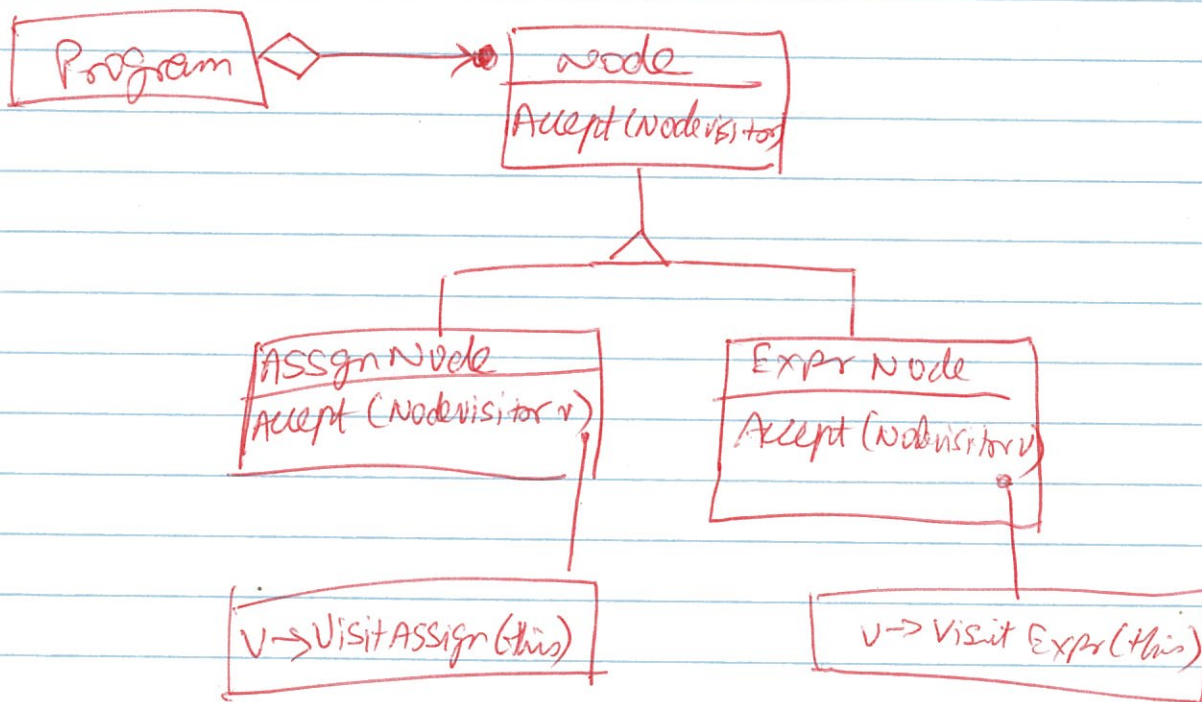 Program
Node
Accept (Nodevisitor)
AssgnNode
Accept (Nodevisitor v)
Expr Node
Accept (Nodevisitor v)
v->VisitAssign(this)
v->Visit Expr(this)